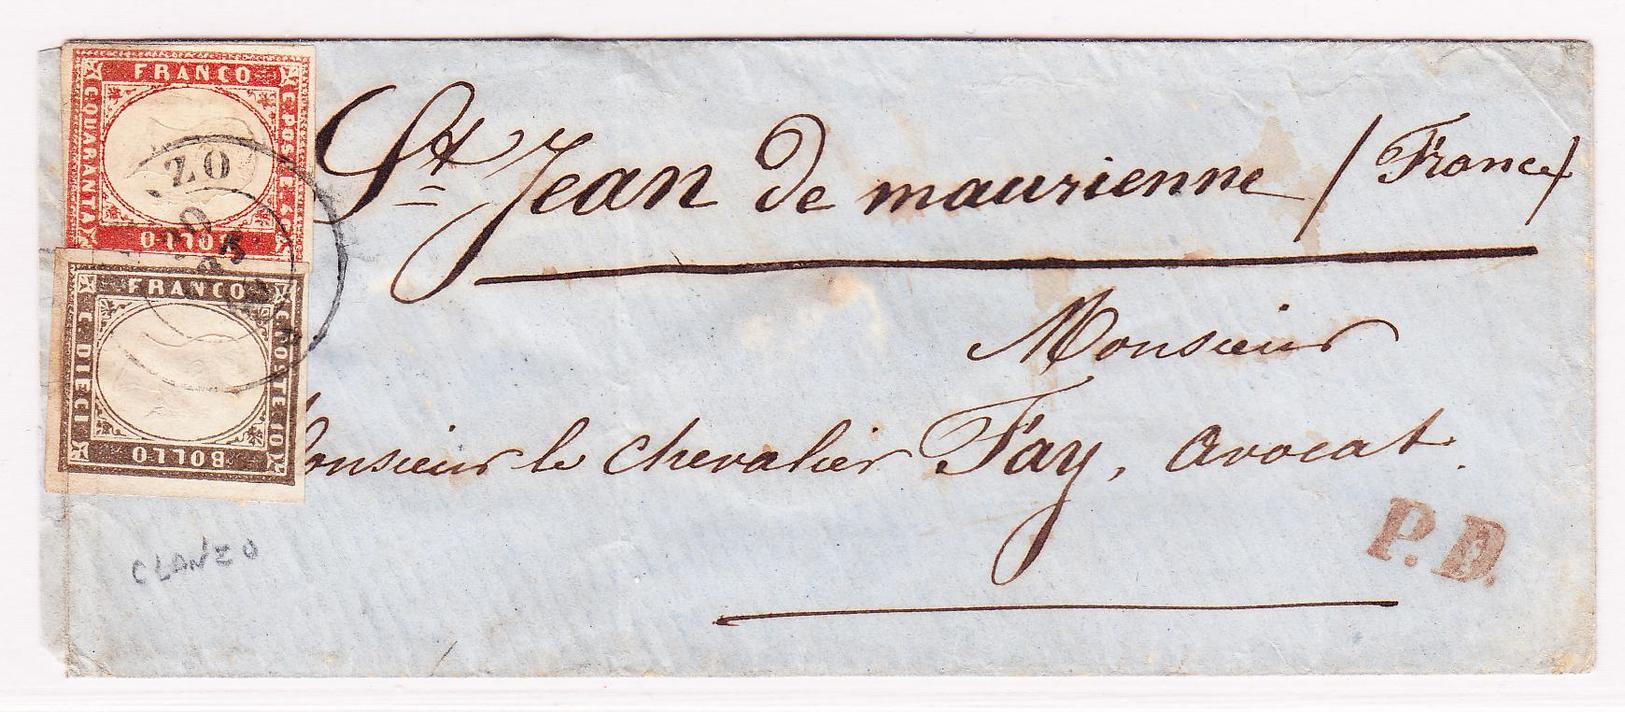 FRANCO
C. QUARANTA
C. POSTE 40
BOLLO
ZO
FRANCO
C. DIECI
C. POSTE 10
BOLLO
St Jean de maurienne (France)
Monsieur
Monsieur le chevalier Fay, avocat.
P.D.
CLANZO